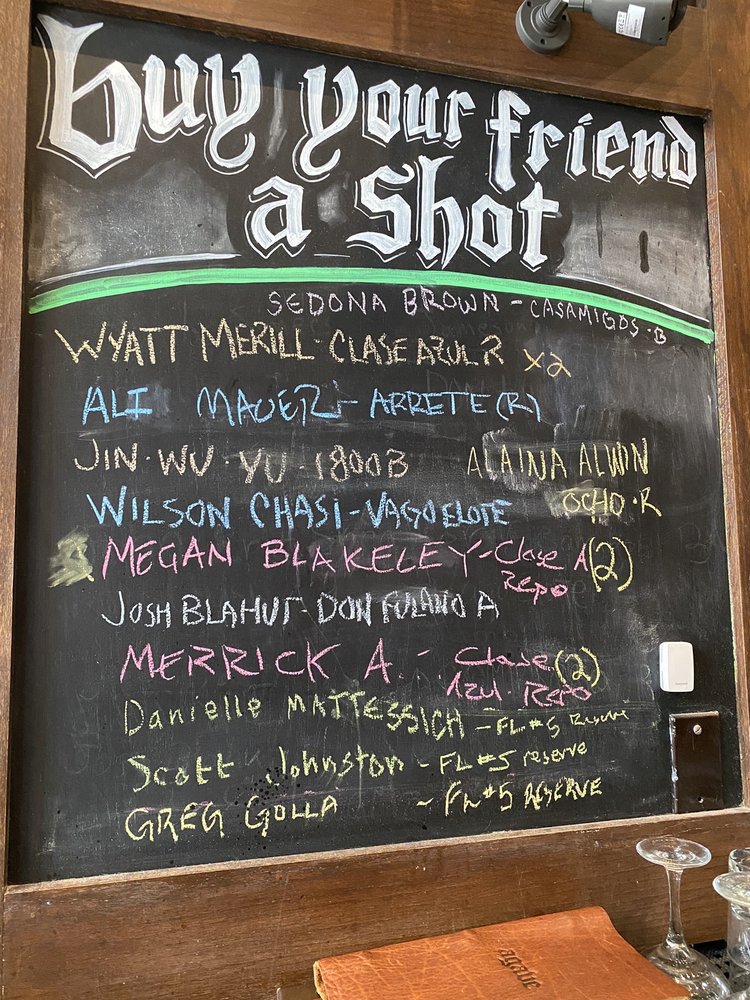 buy your friend
a shot
SEDONA BROWN - CASAMIGOS · B
WYATT MERILL - CLASE AZUL R x2
ALI MAUER - ARRETE (R)
JIN · WU · YU - 1800 B
ALAINA ALWIN
OCHO · R
WILSON CHASI - VAGO ELOTE
MEGAN BLAKELEY - Clase A (2)
Repo
JOSH BLAHUT - DON FULANO A
MERRICK A. - Clase (2)
Azul · Repo
Danielle MATTESSICH - FL #5 Reserve
Scott Johnston - FL #5 reserve
GREG GOLLA - FL #5 RESERVE
agave